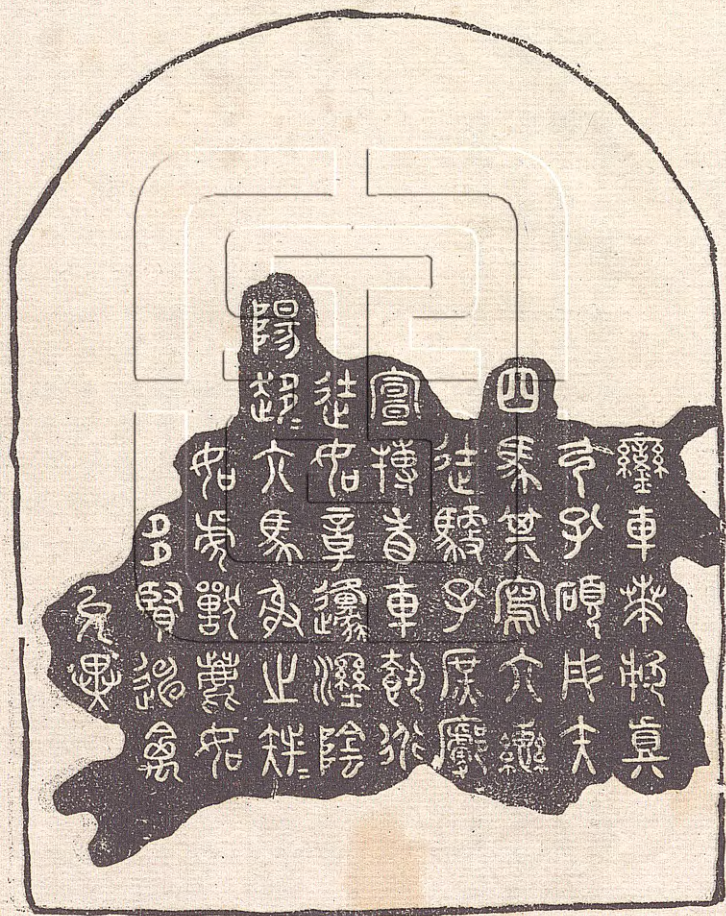 鑾車𠦪敕真
弓孔碩彤矢
四馬其寫六轡
徒馭孔庶廓
宣搏眚車𩛥行
徒如章邍溼陰
陽趍=六馬射之㚘=
如虎獸鹿如
多賢迪禽
允異